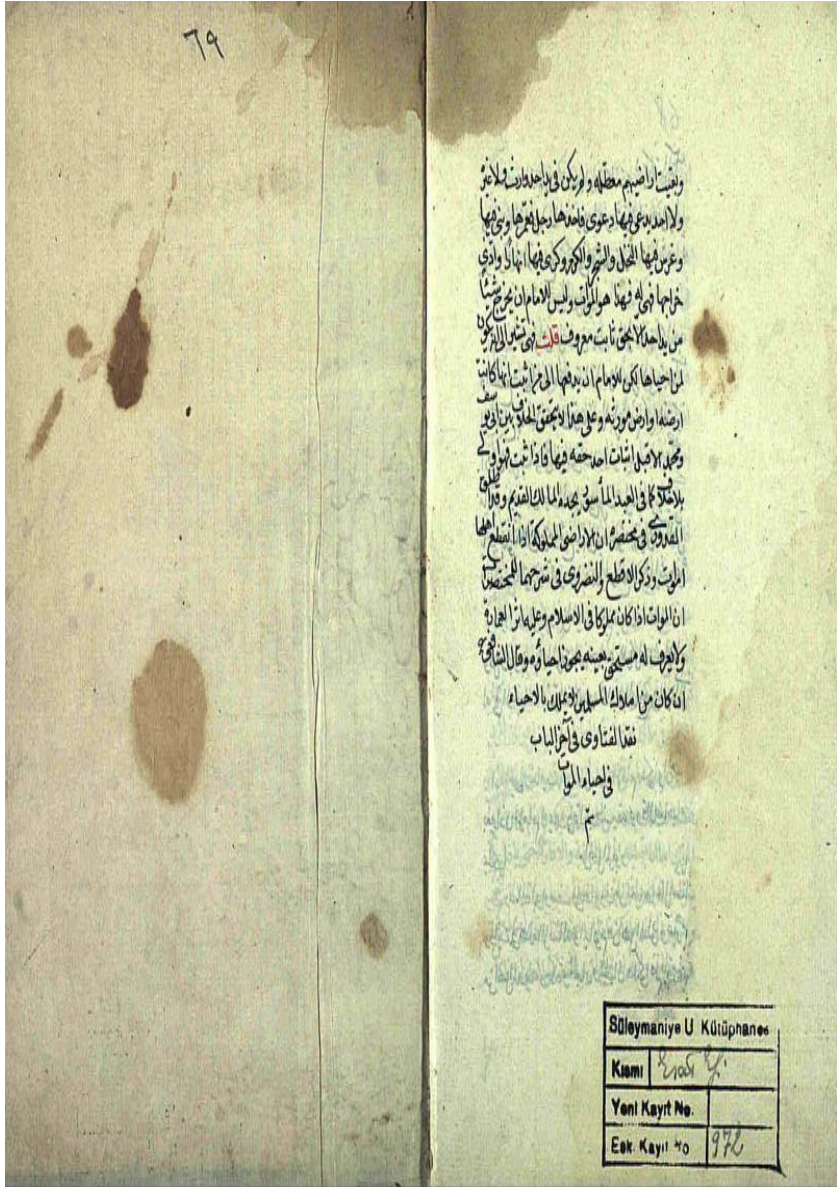 ٦٩
وبقيت اراضيهم معطلة ولم يكن في يد احد وارث ولا غيره
ولا احد يدعي فيها دعوى فاخذها رجل فعمرها وبنى فيها
وغرس فيها النخل والشجر والكروم وكرى فيها انهارا وادى
خراجها فهي له فهذا هو الموات وليس للامام ان يخرج شيئا
من يد احد الا بحق ثابت معروف قلت فهي تشير الى انه يكون
لمن احياها لكن للامام ان يدفعها الى من اثبت انها كانت
ارضه او ارض مورثه وعلى هذا لا يتحقق الخلاف بين ابي يوسف
ومحمد الا قبل اثبات احد حقه فيها فاذا ثبت فهو اولى
بلا خلاف كما في العبد المأسور يجده المالك القديم وقد اطلق
القدوري في مختصره ان الاراضي المملوكة اذا انقطع اهلها
موات وذكر الاقطع في شرحهما للمختصر
ان الموات اذا كان مملوكا في الاسلام وعليه اثر العمارة
ولا يعرف له مستحق بعينه يجوز احياؤه وقال الشافعي
ان كان من املاك المسلمين لا يملك بالاحياء
نقد الفتاوى في آخر الباب
في احياء الموات
تم
Süleymaniye U Kütüphanesi
Kısmı
Yeni Kayıt No.
Esk. Kayıt No 972